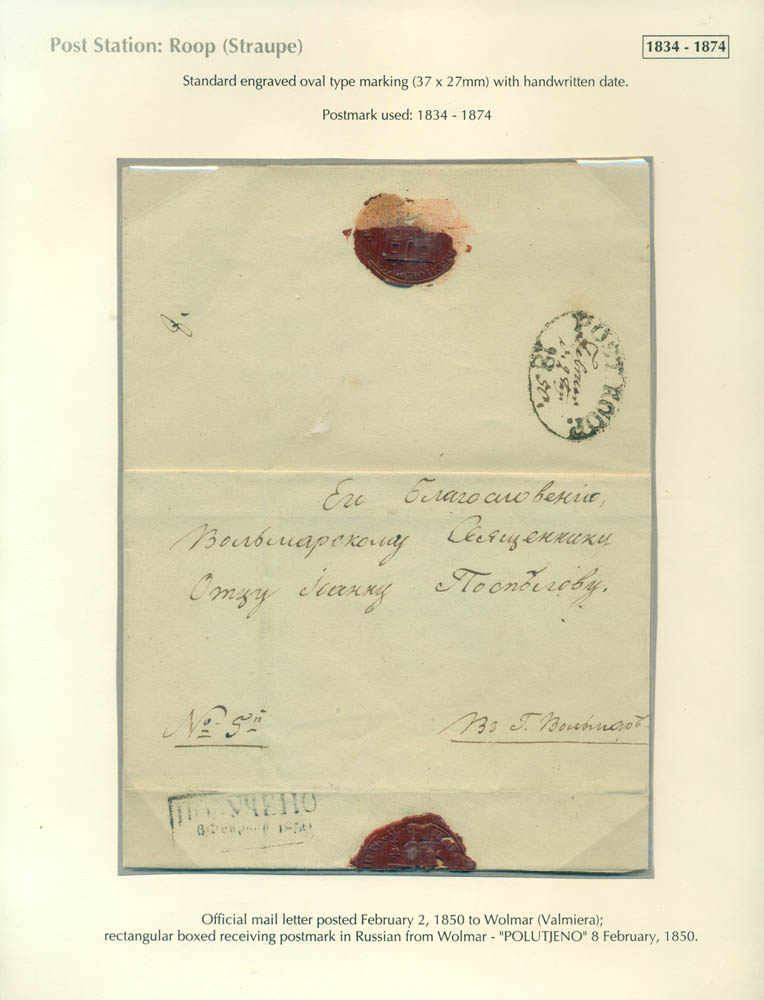 Post Station: Roop (Straupe)
1834 - 1874
Standard engraved oval type marking (37 x 27mm) with handwritten date.
Postmark used: 1834 - 1874
POST ROOP.
Его Благословенію,
Вольмарскому Священнику
Отцу Іоанну Поспѣлову.
№ 5й
Въ Г. Вольмаръ
ПОЛУЧЕНО
8 Февраля 1850
Official mail letter posted February 2, 1850 to Wolmar (Valmiera);
rectangular boxed receiving postmark in Russian from Wolmar - "POLUTJENO" 8 February, 1850.